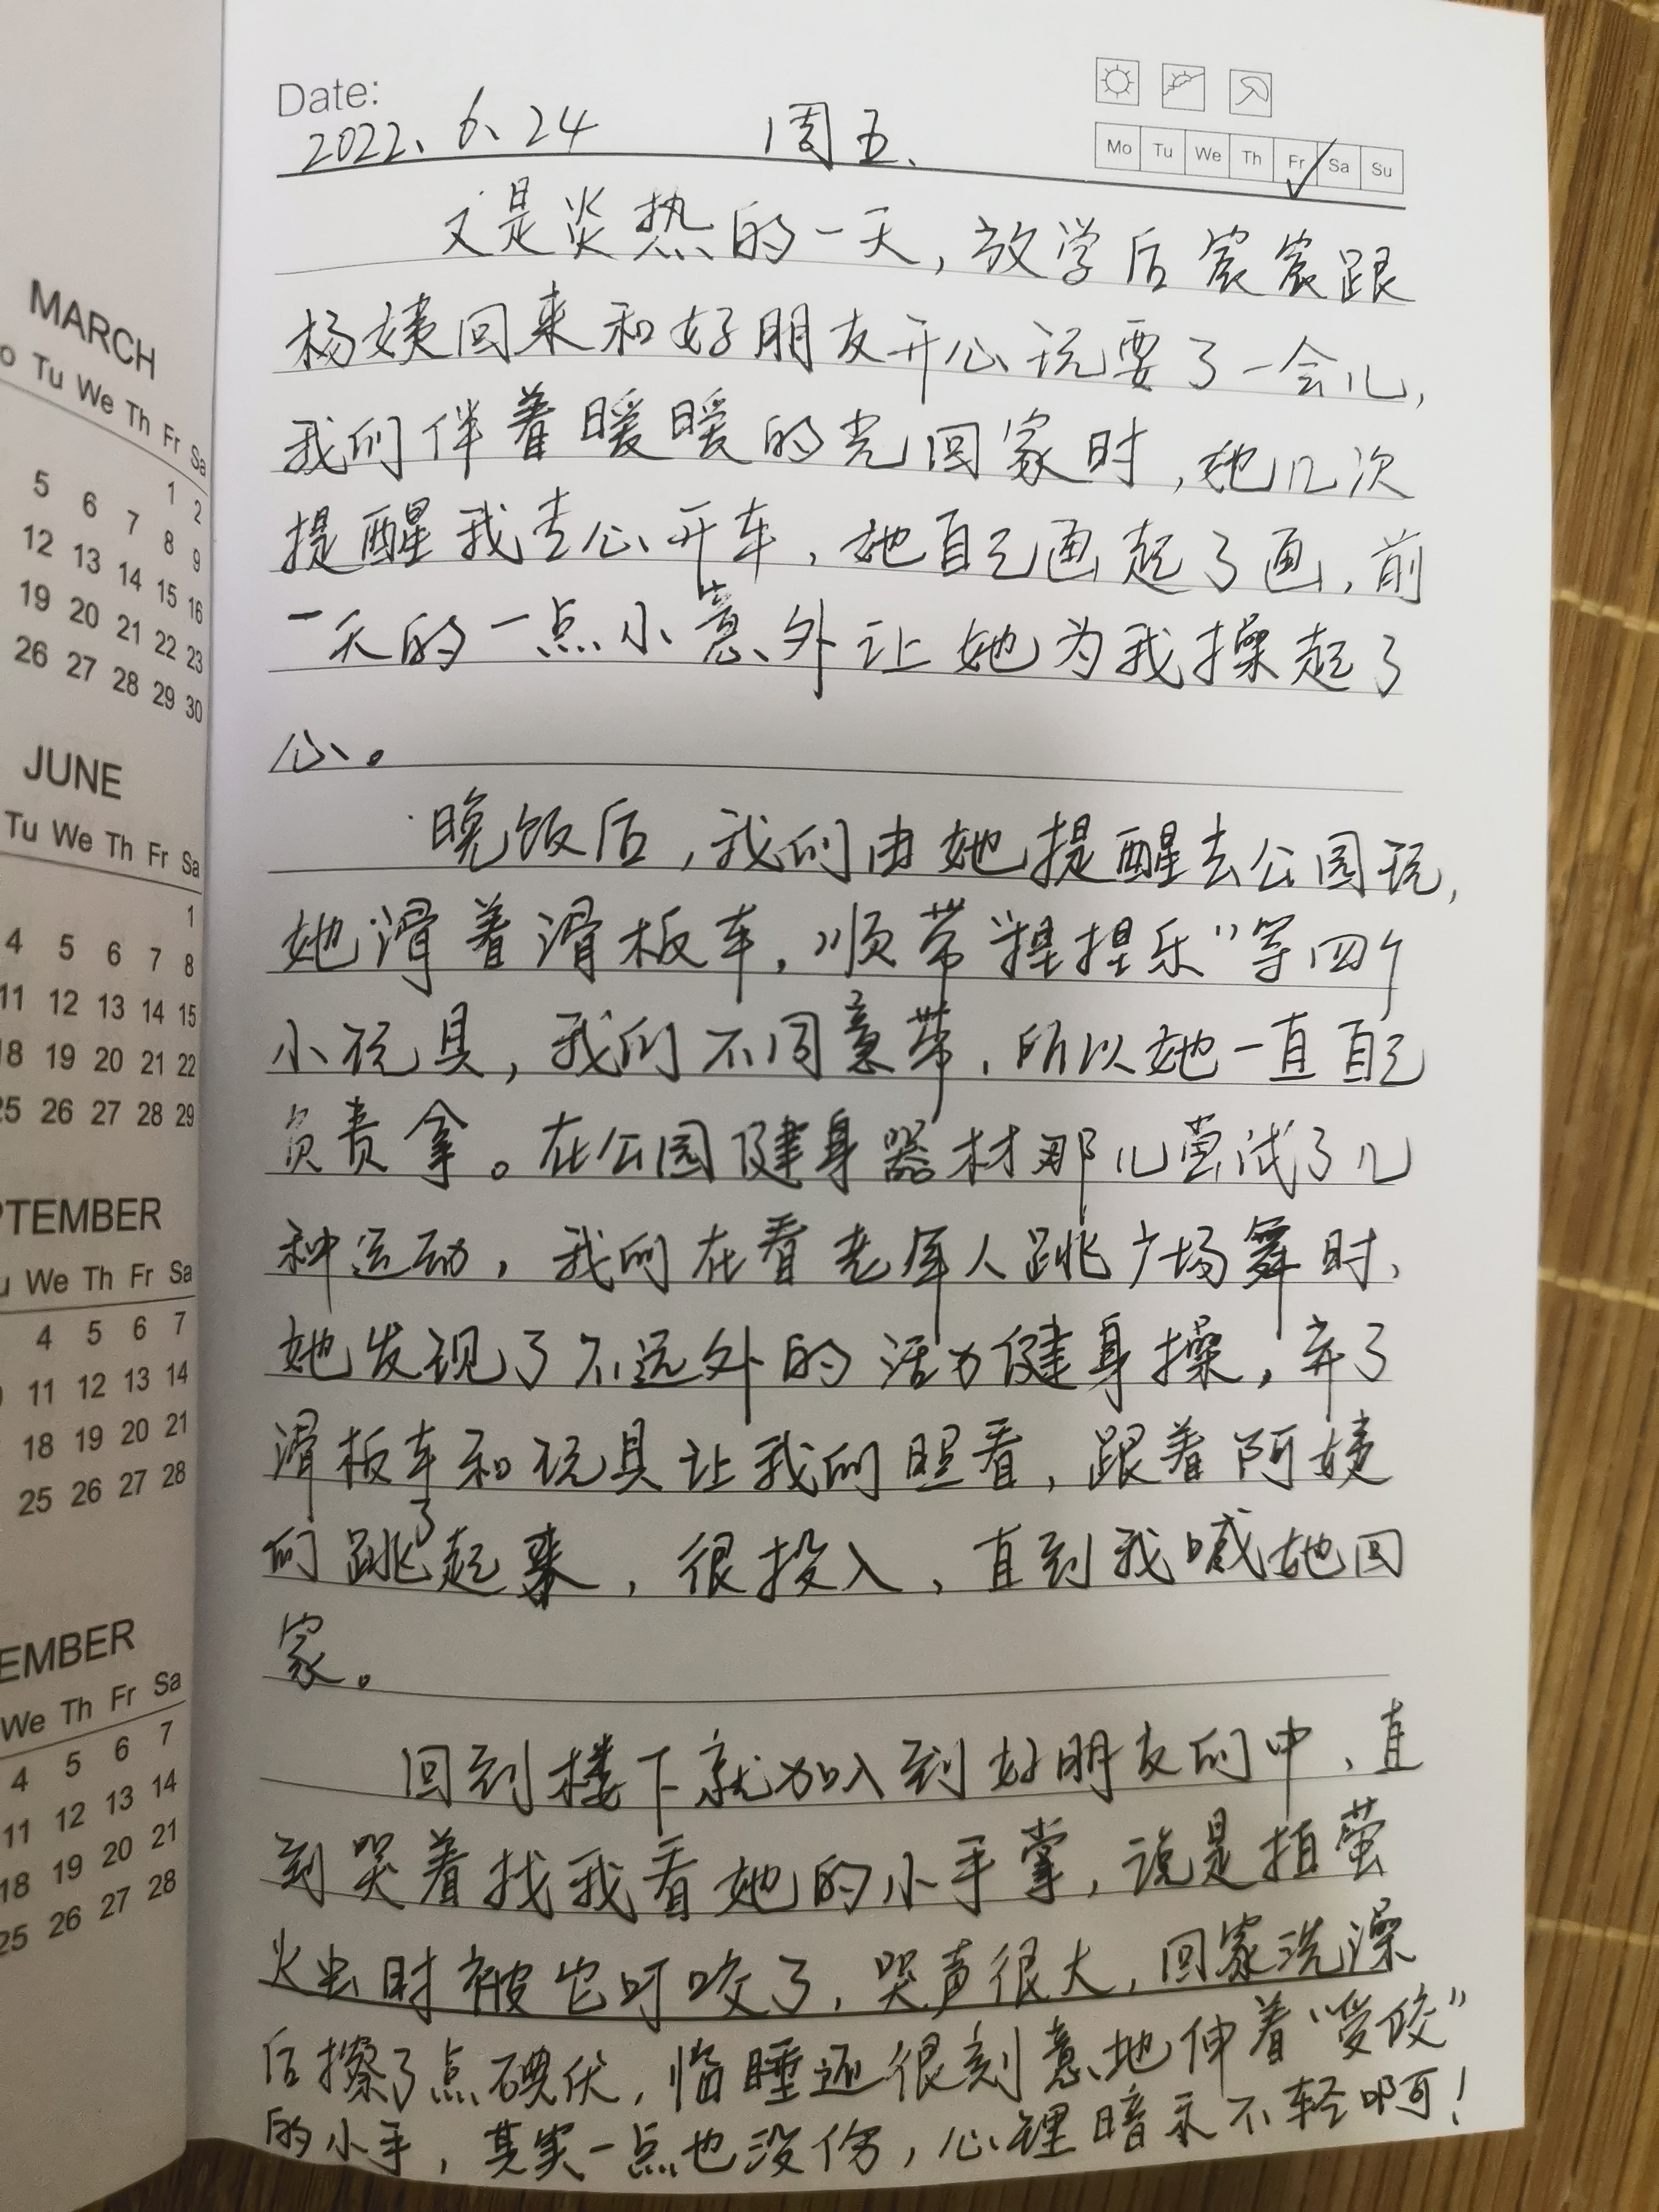 MARCH
o Tu We Th Fr Sa
1 2
5 6 7 8 9
12 13 14 15 16
19 20 21 22 23
26 27 28 29 30
JUNE
Tu We Th Fr Sa
1
4 5 6 7 8
11 12 13 14 15
18 19 20 21 22
25 26 27 28 29
PTEMBER
u We Th Fr Sa
4 5 6 7
11 12 13 14
18 19 20 21
25 26 27 28
EMBER
We Th Fr Sa
4 5 6 7
11 12 13 14
18 19 20 21
25 26 27 28
Date:
2022、6、24 周五、
Mo Tu We Th Fr Sa Su
又是炎热的一天，放学后宸宸跟
杨姨回来和好朋友开心玩耍了一会儿，
我们伴着暖暖的光回家时，她几次
提醒我专心开车，她自己画起了画，前
一天的一点小意外让她为我操起了
心。
晚饭后，我们由她提醒去公园玩，
她滑着滑板车，顺带“捏捏乐”等四个
小玩具，我们不同意带，所以她一直自己
负责拿。在公园健身器材那儿尝试了几
种运动，我们在看老年人跳广场舞时、
她发现了不远外的活力健身操，弃了
滑板车和玩具让我们照看，跟着阿姨
们跳了起来，很投入，直到我喊她回
家。
回到楼下就加入到好朋友们中、直
到哭着找我看她的小手掌，说是拍萤
火虫时被它叮咬了，哭声很大，回家洗澡
后擦了点碘伏，临睡还很刻意地伸着“受咬”
的小手，其实一点也没伤，心理暗示不轻啊！